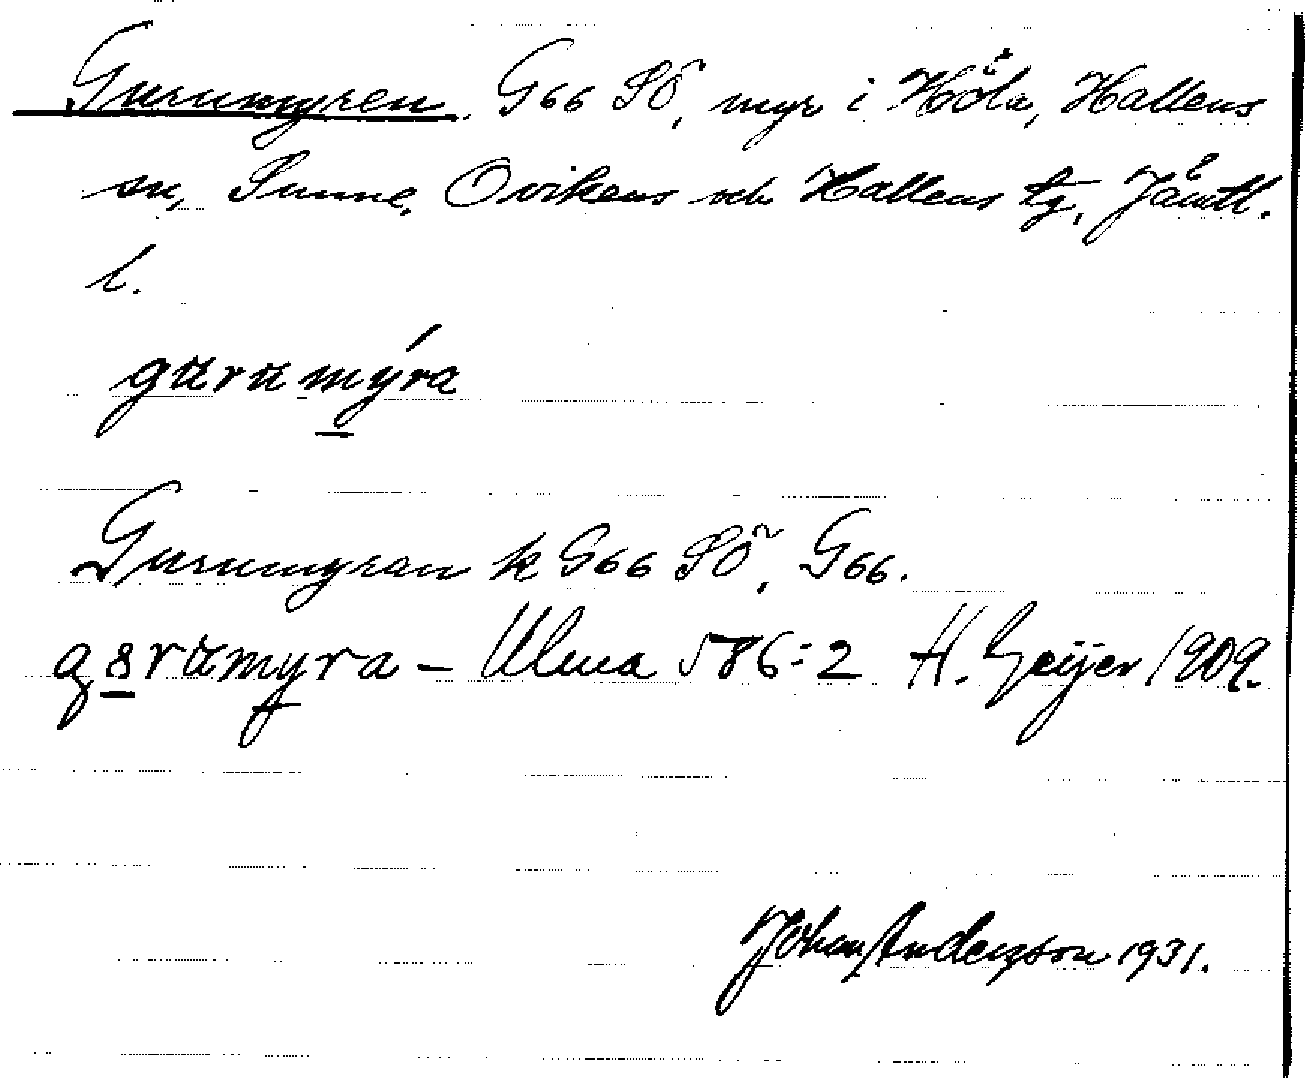 Gurumyren. G66 SÖ, myr i Höla, Hallens
sn, Sunne, Ovikens och Hallens tg, Jämtl.
l.
gurumýra
Gurumyran k G66 SÖ, G66.
gurumyra – Ulma 586:2 H. Geijer 1909.
Johan Anderzson 1931.